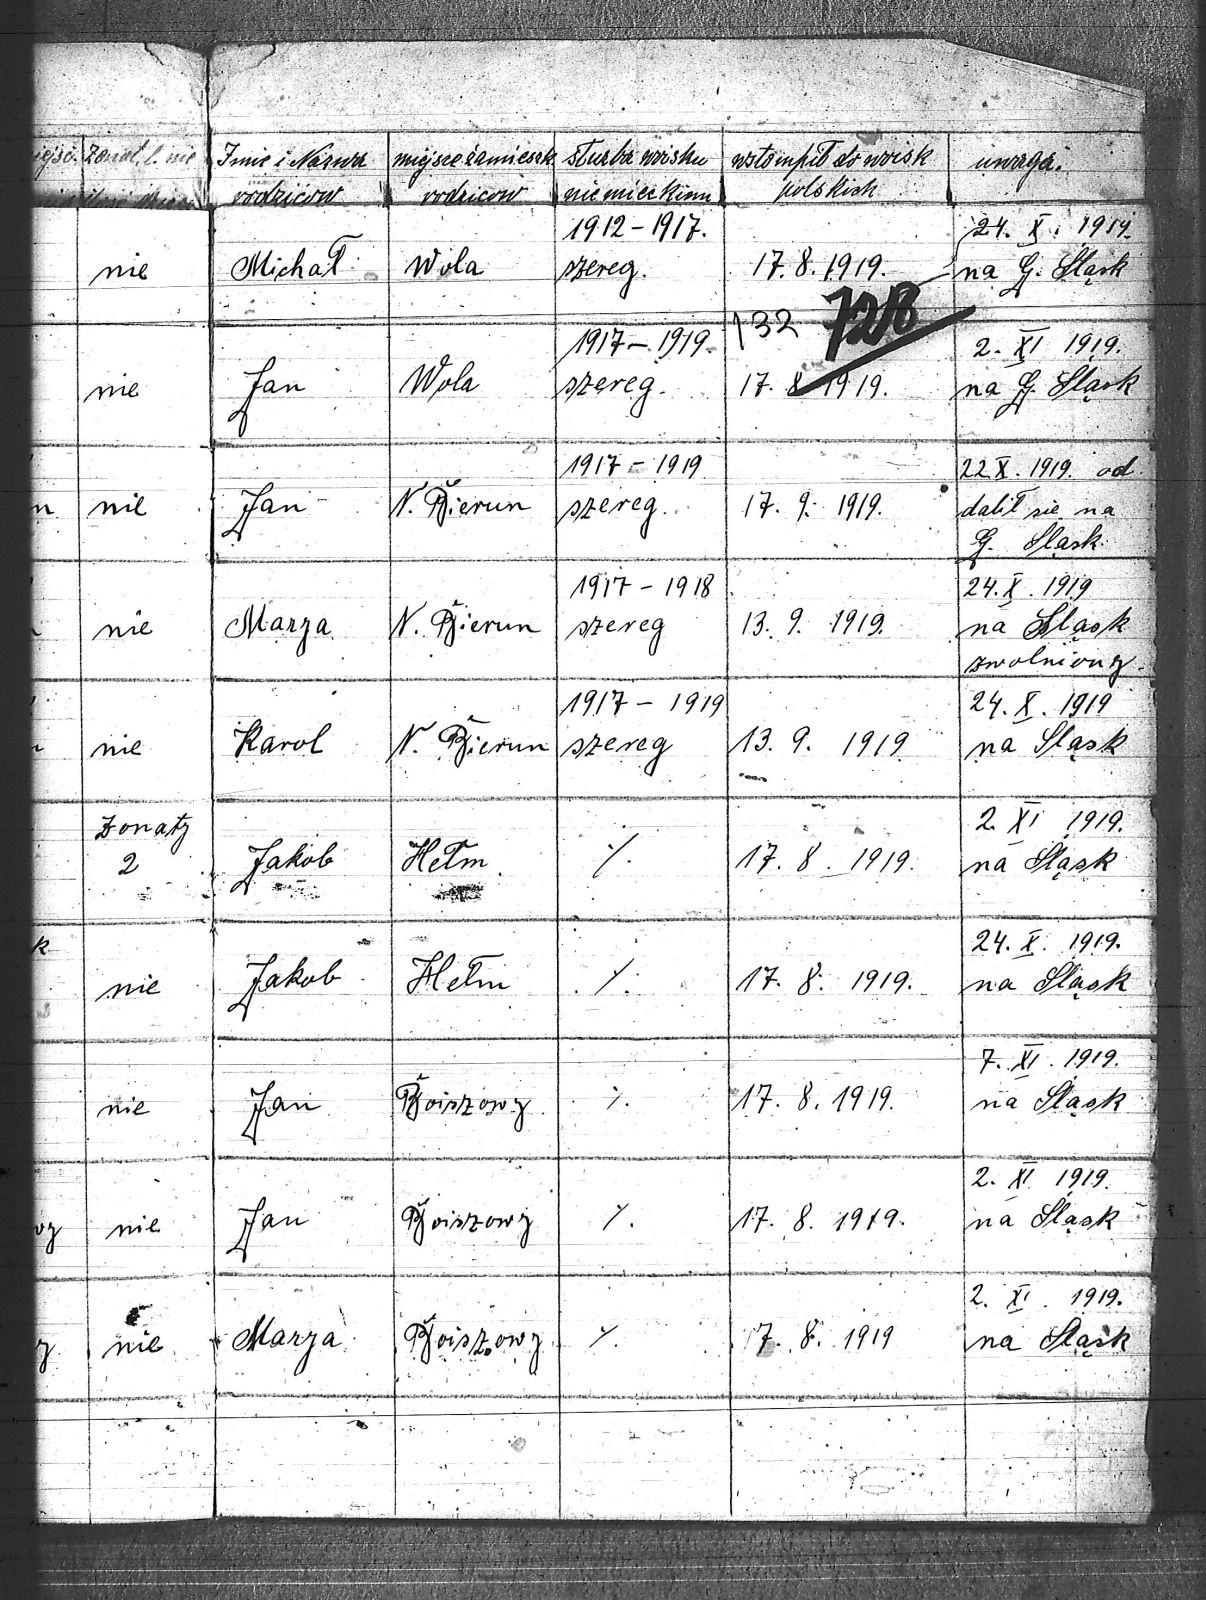 żonat. l. nie Imie i Nazwa miejsce zamieszk służba woisku wstompił do woisk uwaga.
rodziców rodziców niemieckim polskich
1912 – 1917. 24. X. 1919.
nie Michał Wola szereg. 17. 8. 1919. na G. Sląsk
132 728
1917 – 1919. 2. XI 1919.
nie Jan Wola szereg. 17. 8 1919. na G. Sląsk
1917 – 1919 22 X. 1919. od
n nie Jan N. Bierun szereg. 17. 9. 1919. dalił sie na
G. Sląsk.
1917 – 1918 24. X. 1919
nie Marya N. Bierun szereg 13. 9. 1919. na Sląsk
zwolniony.
1917 – 1919 24. X. 1919
nie Karol N. Bierun szereg 13. 9. 1919 na Sląsk
żonaty 2. XI 1919.
2 Jakob Hełm ⁒ 17. 8. 1919. na Sląsk
k 24. X. 1919.
nie Jakob Hełm ⁒ 17. 8. 1919. na Sląsk
7. XI. 1919.
nie Jan Boiszowy ⁒ 17. 8. 1919. na Sląsk
2. XI 1919.
wy nie Jan Boiszowy ⁒ 17. 8. 1919. na Sląsk
2. XI. 1919.
y nie Marya Boiszowy ⁒ 17. 8. 1919 na Sląsk